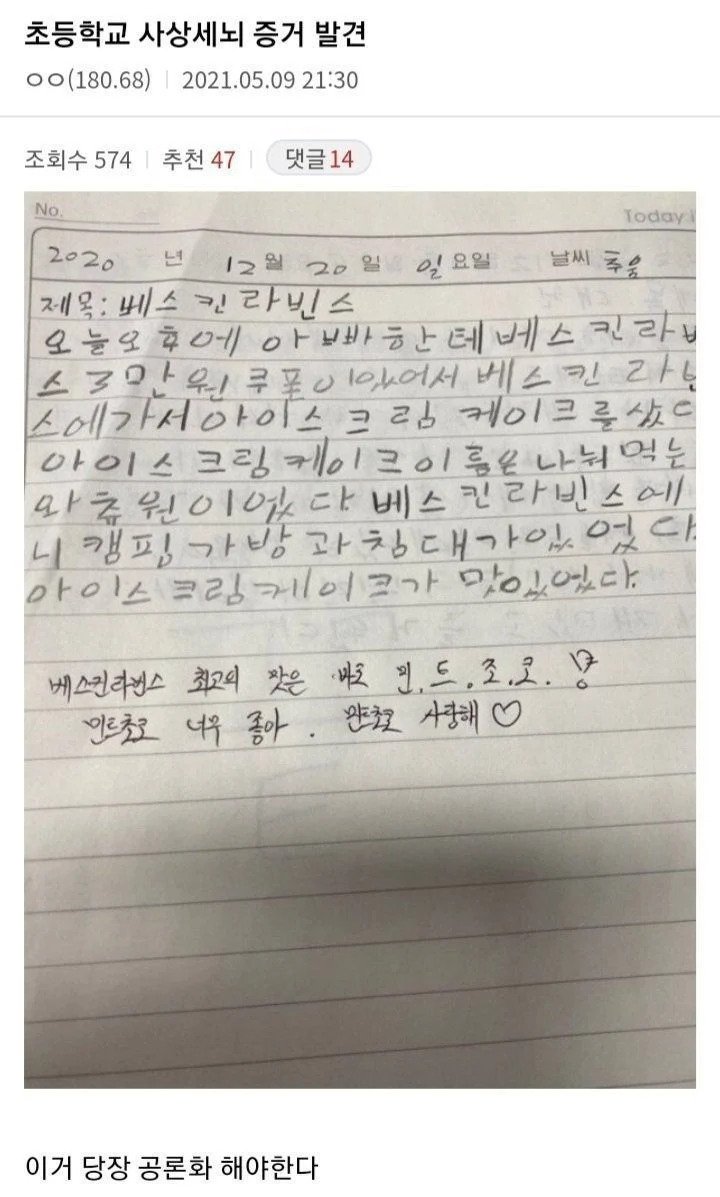 초등학교 사상세뇌 증거 발견
ㅇㅇ(180.68) | 2021.05.09 21:30
조회수 574 | 추천 47 | 댓글 14
No. Today i
2020 년 12월 20일 일요일 날씨 추움
제목: 베스킨라빈스
오늘오후에 아빠한테베스킨라
스3만원쿠폰이있어서 베스킨라
스에가서아이스크림 케이크를샀
아이스크림케이크이름은나눠먹는
와츄원이었다 베스킨라빈스에
니캠핑가방과침대가있었다.
아이스크림케이크가 맛있었다.
베스킨라빈스 최고의 맛은 바로 민.트.초.코.
민트초코 너무 좋아. 민트초코 사랑해♡
이거 당장 공론화 해야한다